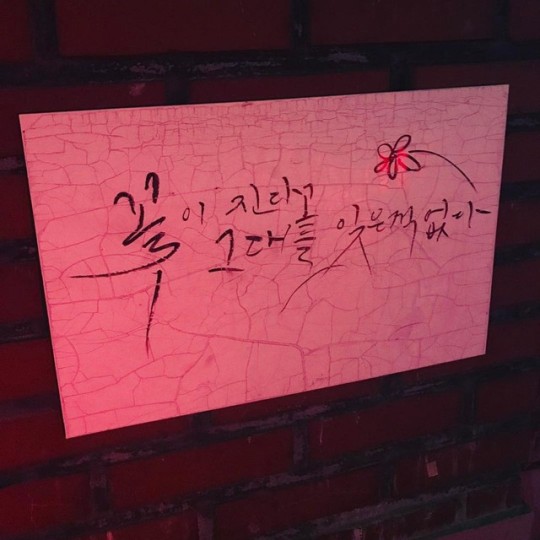 꽃이 진다고
그대를 잊은적 없다